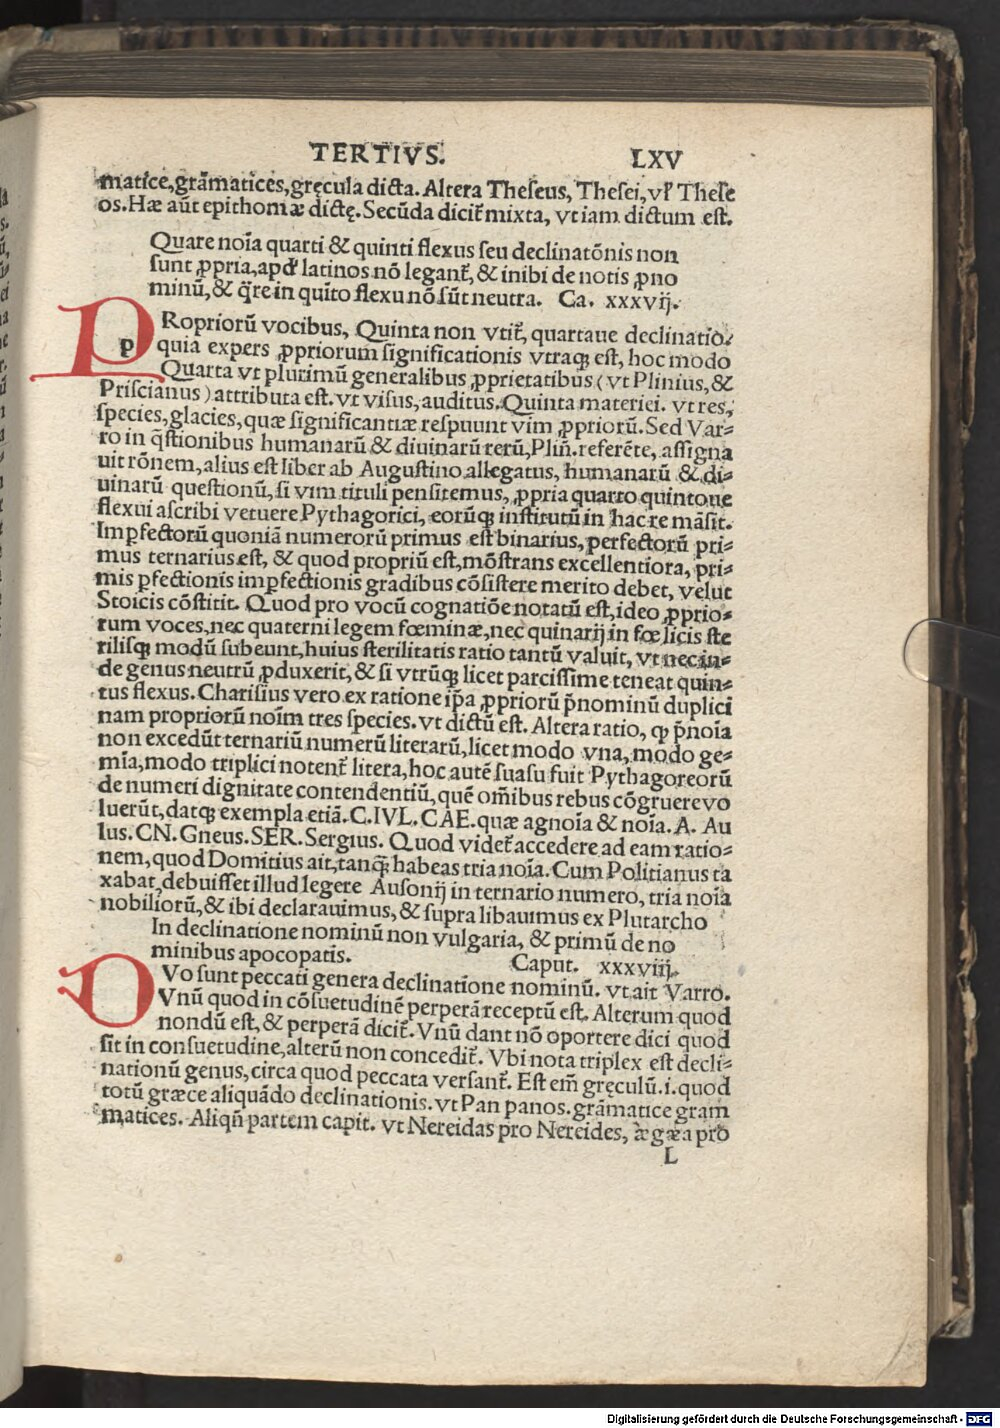 TERTIVS. LXV
matice,grãmatices,gręcula dicta. Altera Theseus, Thesei,vł These
os.Hæ aũt epithomæ dictę.Secũda dicit̃ mixta, vt iam dictum est.
Quare noĩa quarti & quinti flexus seu declinatõnis non
sunt ꝓpria,apđ latinos nõ legant̃, & inibi de notis ꝓno
minũ,& q̃re in quĩto flexu nõ sũt neutra. Ca. xxxvij.
p
PRopriorũ vocibus, Quinta non vtit̃, quartaue declinatio:
quia expers ꝓpriorum significationis vtraqꝫ est, hoc modo
Quarta vt plurimũ generalibus ꝓprietatibus (vt Plinius, &
Priscianus) attributa est. vt visus, auditus. Quinta materiei. vt res,
species,glacies,quæ significantiæ respuunt vim ꝓpriorũ. Sed Var-
ro in q̃stionibus humanarũ & diuinarũ rerũ,Plin̄.referẽte, assigna
uit rõnem,alius est liber ab Augustino allegatus, humanarũ & di-
uinarũ questionũ,si vim tituli pensitemus, ꝓpria quarto quintoue
flexui ascribi vetuere Pythagorici, eorũqꝫ institutũ in hac re mãsit.
Imꝑfectorũ quoniã numerorũ primus est binarius, perfectorũ pri-
mus ternarius est, & quod propriũ est,mõstrans excellentiora, pri-
mis ꝑfectionis imꝑfectionis gradibus cõsistere merito debet, velut
Stoicis cõstitit. Quod pro vocũ cognatiõe notatũ est,ideo ꝓprio-
rum voces,nec quaterni legem fœminæ,nec quinarij in fœlicis ste
rilisqꝫ modũ subeunt,huius sterilitatis ratio tantũ valuit, vt nec in-
de genus neutrũ ꝓduxerit,& si vtrũqꝫ licet parcissime teneat quin-
tus flexus. Charisius vero ex ratione ip̃a ꝓpriorũ p̃nominũ duplici
nam propriorũ noĩm tres species. vt dictũ est. Altera ratio, ꝙ p̃noĩa
non excedũt ternariũ numerũ literarũ,licet modo vna, modo ge-
mĩa,modo triplici notent̃ litera,hoc autẽ suasu fuit Pythagoreorũ
de numeri dignitate contendentiũ,quẽ om̃ibus rebus cõgruere vo
luerũt,datqꝫ exempla etiã.C.IVL.CAE.quæ agnoĩa & noĩa.A. Au
lus.CN.Gneus.SER.Sergius. Quod videt̃ accedere ad eam ratio-
nem,quod Domitius ait,tanq̃ habeas tria noĩa. Cum Politianus ta
xabat,debuisset illud legere Ausonij in ternario numero, tria noĩa
nobiliorũ,& ibi declarauimus,& supra libauimus ex Plutarcho
In declinatione nominũ non vulgaria, & primũ de no
minibus apocopatis. Caput. xxxviij.
DVo sunt peccati genera declinatione nominũ. vt ait Varro.
Vnũ quod in cõsuetudinẽ perperã receptũ est. Alterum quod
nondũ est,& perperã dicit̃. Vnũ dant nõ oportere dici quod
sit in consuetudine,alterũ non concedit̃. Vbi nota triplex est decli-
nationũ genus,circa quod peccata versant̃. Est em̃ gręculũ.i.quod
totũ græce aliquãdo declinationis. vt Pan panos.grãmatice gram
matices. Aliqñ partem capit. vt Nereidas pro Nereides, ægæa pro
L
Digitalisierung gefördert durch die Deutsche Forschungsgemeinschaft - DFG